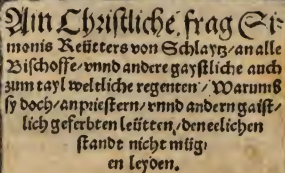 Ain Christliche frag Si⸗
monis Reütters von Schlaytz/an alle
Bischoffe/vnnd andere gaystliche auch
zum tayl weltliche regenten/Warumb
sy doch/an priestern/vnnd andern gaist⸗
lich geferbten leütten/den eelichen
standt nicht müg⸗
en leyden.